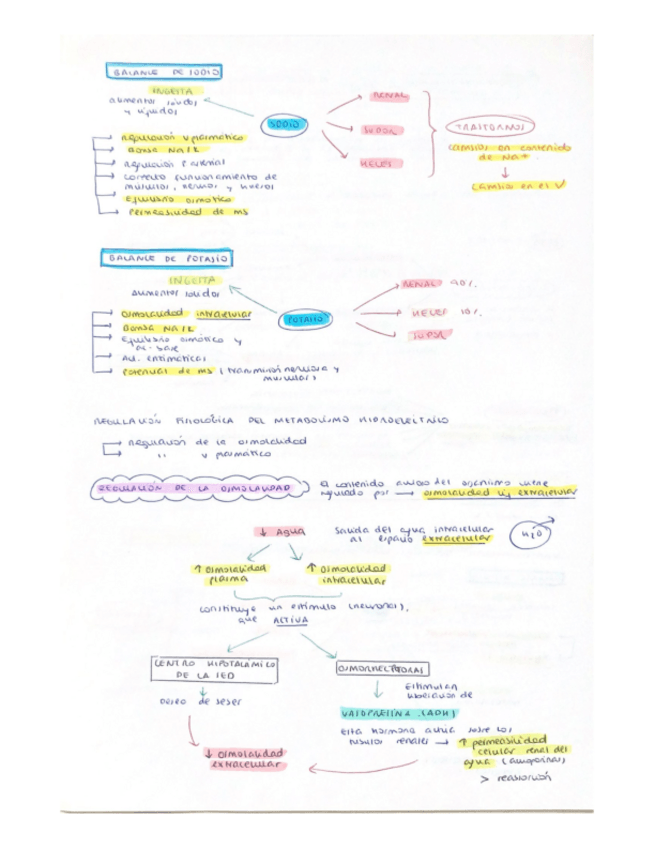 BALANCE DE SODIO
INGESTA
alimentos sólidos
y líquidos
SODIO
RENAL
SUDOR
HECES
TRASTORNOS
cambios en contenido
de Na+
cambios en el V
regulación v plasmático
Bomba Na/K
regulación P arterial
correcto funcionamiento de
músculos, nervios y huesos
Equilibrio osmótico
Permeabilidad de ms
BALANCE DE POTASIO
INGESTA
Alimentos sólidos
POTASIO
RENAL 90%
HECES 10%
SUDOR
Osmolalidad intracelular
Bomba Na/K
Equilibrio osmótico y
Act. enzimáticas
Potencial de ms (transmisión nerviosa y
muscular)
REGULACIÓN FISIOLÓGICA DEL METABOLISMO HIDROELÉCTRICO
regulación de la osmolalidad
" v plasmático
REGULACIÓN DE LA OSMOLALIDAD
El contenido acuoso del organismo viene
regulado por → osmolalidad líq extracelular
↓ Agua
Salida del agua intracelular
al espacio extracelular
H2O
↑ Osmolalidad
plasma
↑ Osmolalidad
intracelular
constituye un estímulo (neuronas),
que ACTIVA
CENTRO HIPOTALÁMICO
DE LA SED
OSMORRECEPTORAS
Deseo de beber
Estimulan
liberación de
VASOPRESINA (ADH)
esta hormona actúa sobre los
túbulos renales → ↑ permeabilidad
celular renal del
agua (acuaporinas)
> reabsorción
↓ Osmolalidad
extracelular